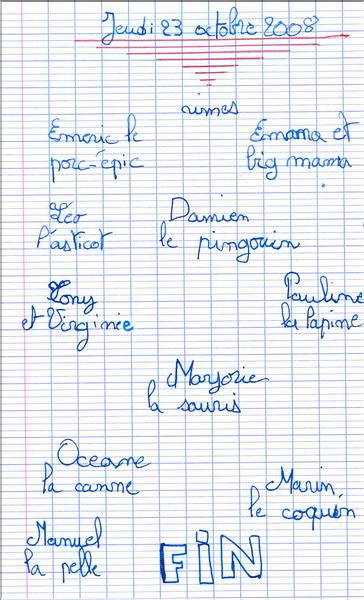 Jeudi 23 octobre 2008
rimes
Emeric le
porc-épic
Emama et
big mama
Léo
l'asticot
Damien
le pingouin
Tony
et Virginie
Pauline
la lapine
Marjorie
la souris
Oceane
la canne
Marin
le coquin
Manuel
la pelle
FiN